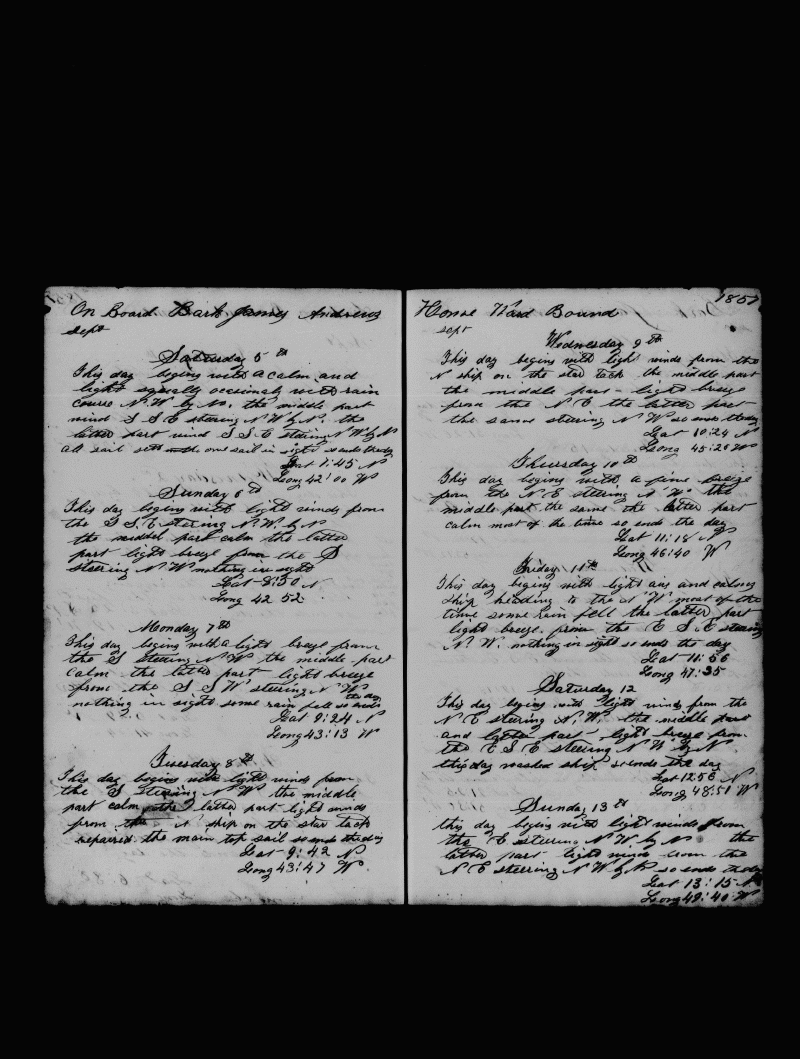 On Board Bark James Andrews
Sept
Saturday 5th
This day begins with a calm and
light squally occesionaly with rain
course N.W. by No. the middle part
wind S S E steering N W by N. the
latter part wind S S E steering N W by N
all sail sett one sail in sight so ends the day
Lat 7:45 N
Long 42:00 W
Sunday 6th
This day begins with light winds from
the S S. E stering N. W. by N
the middel part calm the latter
part light breze from the S
steering N W nothing in sight
Lat 8:50 N
Long 42 52
Monday 7th
This day begins with a light breze from
the S Steering N W the middle part
calm the latter part light breeze
from the S S W steering N W
nothing in sight some rain fell so ends
the day
Lat 9:24 N
Long 43:13 W
Tuesday 8th
This day begins with light winds from
the S Steering N W the middle
part calm the latter part light winds
from the N ship on the star tack
repaired the main top sail so ends the day
Lat 9:42 N
Long 43:47 W
Home Ward Bound
1857
Sept
Wednesday 9th
This day begins with light winds from the
N ship on the star tack the middle part
the middle part light breze
from the N E the latter part
the same steering N W so ends the day
Lat 10:24 N
Long 45:20 W
Thursday 10th
This day begins with a fine breze
from the N E steering N W the
middle part the same the latter part
calm most of the time so ends the day
Lat 11:18 N
Long 46:40 W
Friday 11th
This day begins with light airs and calms
ship heading to the N W most of the
time some rain fell the latter part
light breze from the E S E steering
N. W. nothing in sight so ends the day
Lat 11:56
Long 47:35
Saturday 12
This day begins with light winds from the
N E steering N. W. the middle part
and latter part light breze from
the E S E steering N W by N.
this day washed ship so ends the day
Lat 12:56 N
Long 48:51 W
Sunday 13th
this day begins with light winds from
the E steering N W by N the
latter part light winds from the
N E steering N W by N so ends the day
Lat 13:15 N
Long 49:40 W